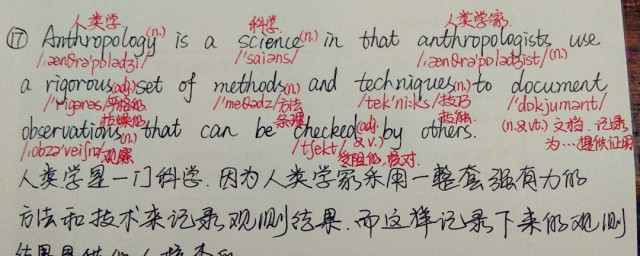 人类学 科学 人类学家
⑰ Anthropology (n.) is a science (n.) in that anthropologists use
/ˌænθrə'pɒlədʒi/ /'saiəns/ /ˌænθrə'pɒlədʒist/ (n.)
a rigorous (adj.) set of methods (n.) and techniques (n.) to document
/'rigərəs/ 严格的 /'meθədz/ 方法 /tek'ni:ks/ 技巧 /'dɒkjumənt/
条理 技能
observations (n.) that can be checked (adj. & v.) by others. (n.&vt.) 文档、记录
/ˌɒbzə'veiʃn/ 观察 /tʃekt/ 核对. 为…提供证明
人类学是一门科学.因为人类学家采用一整套强有力的
方法和技术来记录观测结果.而这样记录下来的观测